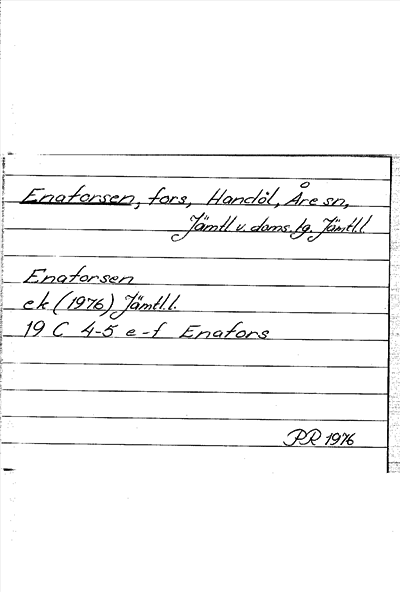 Enaforsen, fors, Handöl, Åre sn,
Jämtl v. doms. tg. Jämtl.l.
Enaforsen
ek (1976) Jämtl.l.
19 C 4-5 e-f Enafors
PR 1976